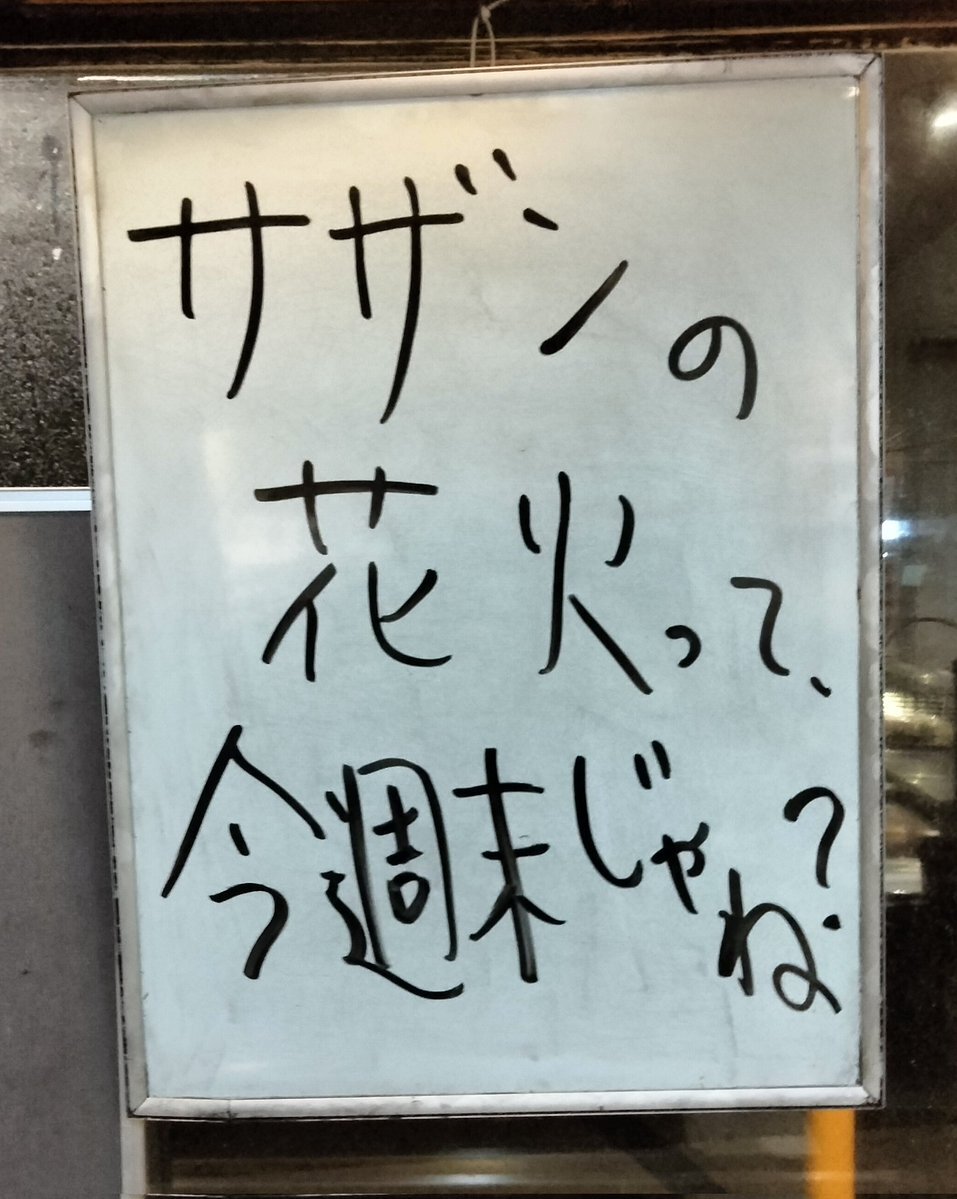 サザンの
花火って、
今週末じゃね?